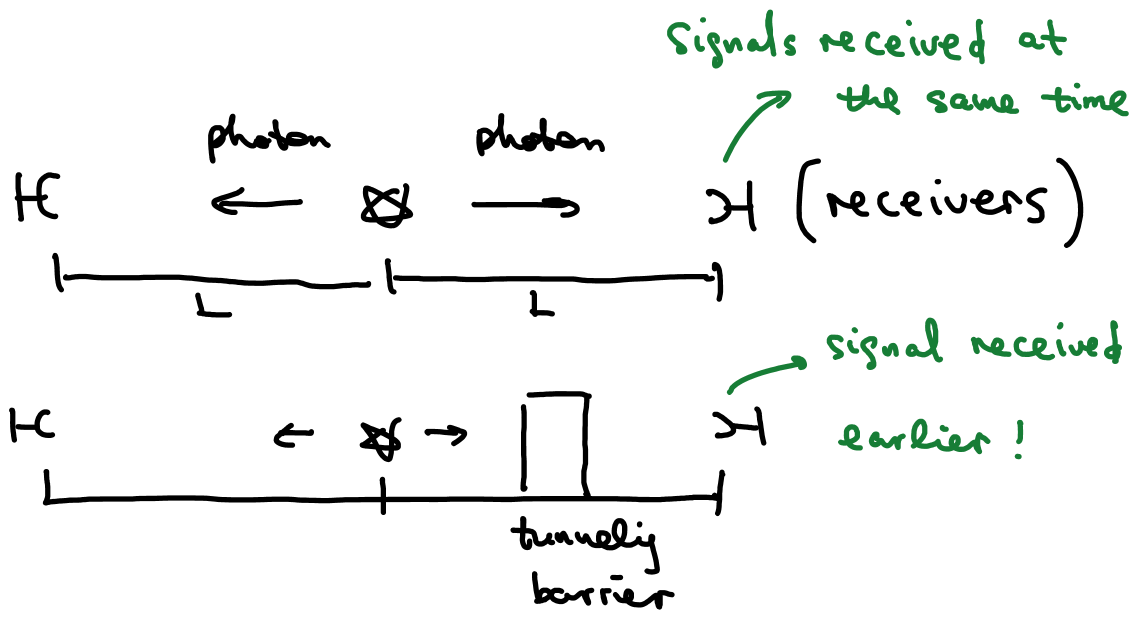 signals received at
the same time
photon photon
(receivers)
L L
signal received
earlier!
tunnelig
barrier